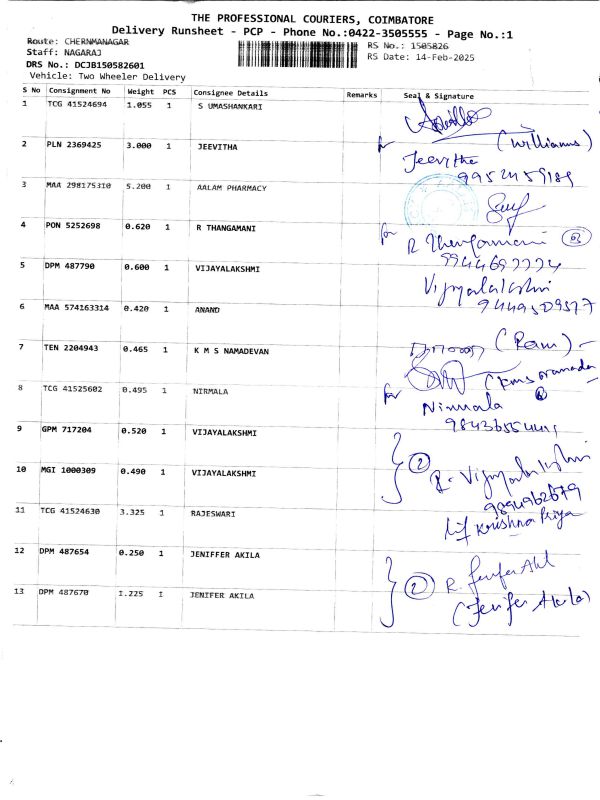 THE PROFESSIONAL COURIERS, COIMBATORE
Delivery Runsheet - PCP - Phone No.:0422-3505555 - Page No.:1
Route: CHERNMANAGAR
RS No.: 1505826
Staff: NAGARAJ
RS Date: 14-Feb-2025
DRS No.: DCJB150582601
Vehicle: Two Wheeler Delivery
S No Consignment No Weight PCS Consignee Details Remarks Seal & Signature
1 TCG 41524694 1.055 1 S UMASHANKARI
(Williams)
2 PLN 2369425 3.000 1 JEEVITHA for Jeevitha
3 MAA 298175310 5.200 1 AALAM PHARMACY
4 PON 5252698 0.620 1 R THANGAMANI for R Thangamani
5 DPM 487790 0.600 1 VIJAYALAKSHMI Vijayalakshmi
6 MAA 574163314 0.420 1 ANAND
(Ram)
7 TEN 2204943 0.465 1 K M S NAMADEVAN
8 TCG 41525602 0.495 1 NIRMALA for Nirmala
9 GPM 717204 0.520 1 VIJAYALAKSHMI
10 MGI 1000309 0.490 1 VIJAYALAKSHMI 2 R. Vijayalakshmi
9894962679
11 TCG 41524630 3.325 1 RAJESWARI Krishna Priya
12 DPM 487654 0.250 1 JENIFFER AKILA
13 DPM 487670 1.225 1 JENIFER AKILA 2 (Jenifer Akila)